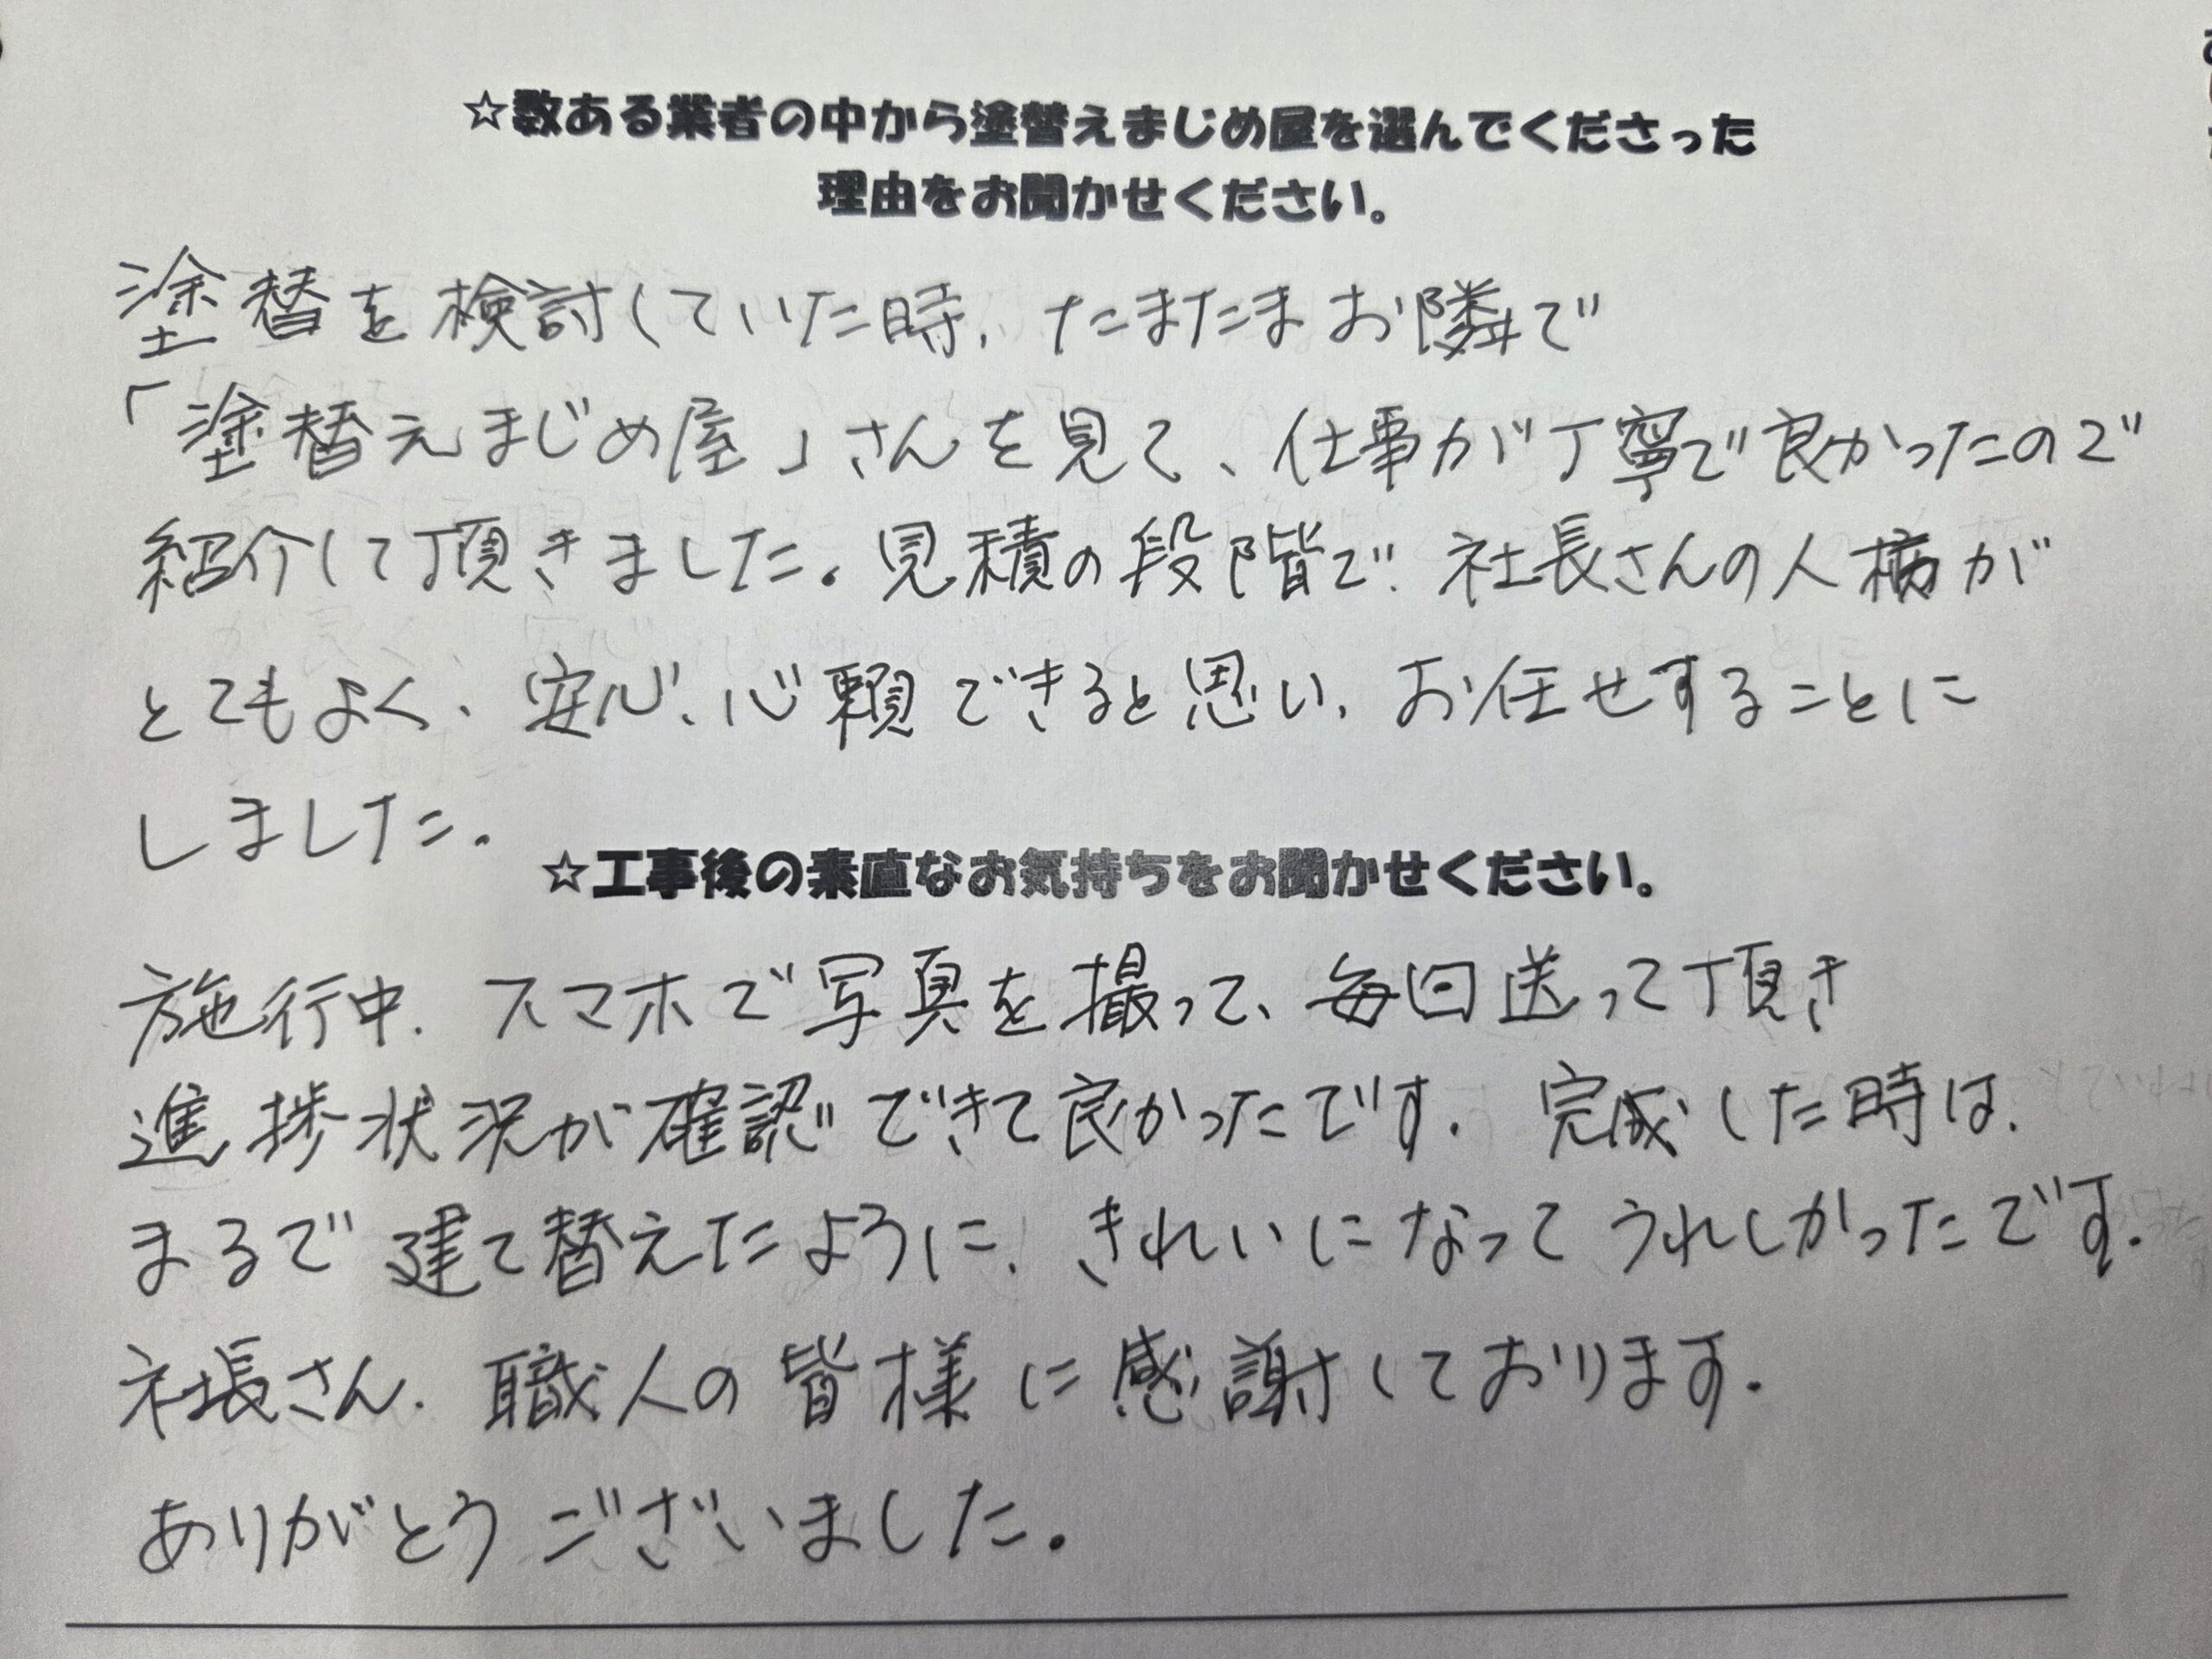 ☆数ある業者の中から塗替えまじめ屋を選んでくださった
理由をお聞かせください。
塗替を検討していた時、たまたまお隣で
「塗替えまじめ屋」さんを見て、仕事が丁寧で良かったので
紹介して頂きました。見積の段階で、社長さんの人柄が
とてもよく、安心、心頼できると思い、お任せすることに
しました。
☆工事後の素直なお気持ちをお聞かせください。
施行中、スマホで写真を撮って、毎回送って頂き
進捗状況が確認できて良かったです。完成した時は、
まるで建て替えたように、きれいになってうれしかったです。
社長さん、職人の皆様に感謝しております。
ありがとうございました。